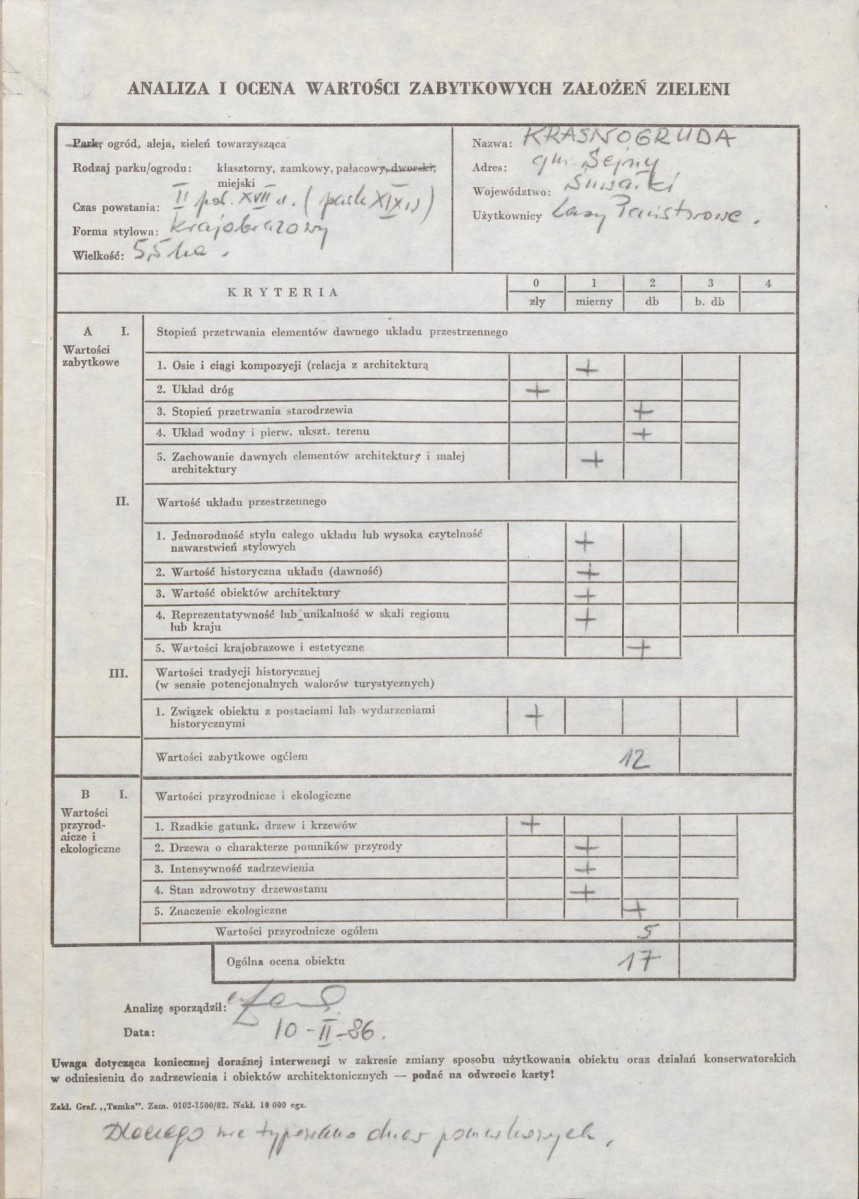 ANALIZA I OCENA WARTOŚCI ZABYTKOWYCH ZAŁOŻEŃ ZIELENI
Park, ogród, aleja, zieleń towarzysząca
Rodzaj parku/ogrodu: klasztorny, zamkowy, pałacowy, dworski,
miejski
Czas powstania: II poł. XVII w. (park XIX w)
Forma stylowa: krajobrazowy
Wielkość: 5,5 ha.
Nazwa: KRASNOGRUDA
Adres: gm. Sejny
Województwo: Suwałki
Użytkownicy Lasy Państwowe.
KRYTERIA
0 1 2 3 4
zły mierny db b. db
A I. Stopień przetrwania elementów dawnego układu przestrzennego
Wartości
zabytkowe
1. Osie i ciągi kompozycji (relacja z architekturą +
2. Układ dróg +
3. Stopień przetrwania starodrzewia +
4. Układ wodny i pierw. ukszt. terenu +
5. Zachowanie dawnych elementów architektury i małej
architektury +
II. Wartość układu przestrzennego
1. Jednorodność stylu całego układu lub wysoka czytelność
nawarstwień stylowych +
2. Wartość historyczna układu (dawność) +
3. Wartość obiektów architektury +
4. Reprezentatywność lub unikalność w skali regionu
lub kraju +
5. Wartości krajobrazowe i estetyczne +
III. Wartości tradycji historycznej
(w sensie potencjonalnych walorów turystycznych)
1. Związek obiektu z postaciami lub wydarzeniami
historycznymi +
Wartości zabytkowe ogółem 12
B I. Wartości przyrodnicze i ekologiczne
Wartości
przyrod-
nicze i
ekologiczne
1. Rzadkie gatunki drzew i krzewów +
2. Drzewa o charakterze pomników przyrody +
3. Intensywność zadrzewienia +
4. Stan zdrowotny drzewostanu +
5. Znaczenie ekologiczne +
Wartości przyrodnicze ogółem 5
Ogólna ocena obiektu 17
Analizę sporządził:
Data: 10-II-86.
Uwaga dotycząca koniecznej doraźnej interwencji w zakresie zmiany sposobu użytkowania obiektu oraz działań konserwatorskich
w odniesieniu do zadrzewienia i obiektów architektonicznych — podać na odwrocie karty!
Zakł. Graf. „Tamka". Zam. 0102-1500/82. Nakł. 10 000 egz.
Dlaczego nie typowano drzew pomnikowych.